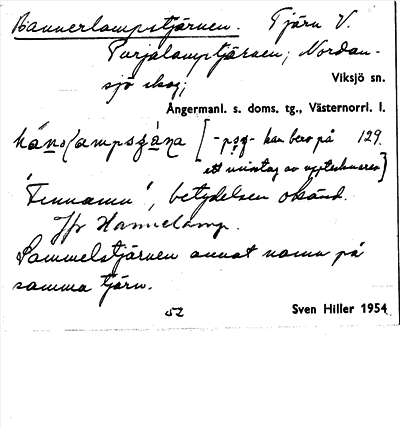 Bannerlampstjärnen. Tjärn V.
Purjalamptjärnen; Nordan-
sjö skog;
Viksjö sn.
Ångermanl. s. doms. tg., Västernorrl. l.
[-pşg- kan bero på 129.
ett misstag av uppteknaren]
'Finnamn', betydelsen okänd.
Jfr Hannelamp.
Sammelstjärnen annat namn på
samma tjärn.
52
Sven Hiller 1954